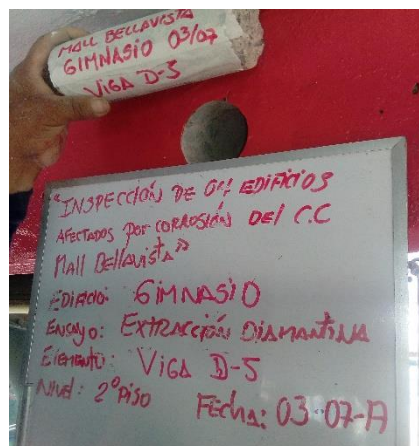 MALL BELLAVISTA
GIMNASIO 03/07
VIGA D-5
"INSPECCIÓN DE 04 EDIFICIOS
AFECTADOS POR CORROSIÓN DEl C.C
MAll BEllAVISTA"
EDIFICIO: GIMNASIO
ENSAYO: EXTRACCIÓN DIAMANTINA
ElEMENTO: VIGA D-5
NIVEl: 2º PISO
FECHA: 03-07-19